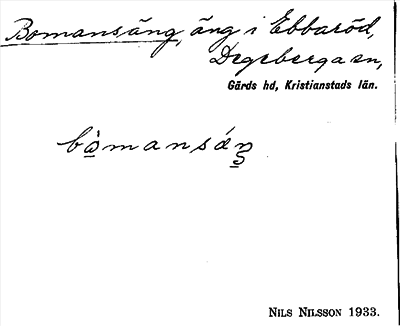 Bomansäng, äng i Ebbaröd,
Degeberga sn,
Gärds hd, Kristianstads län.
bò̱mansáṉ
NILS NILSSON 1933.